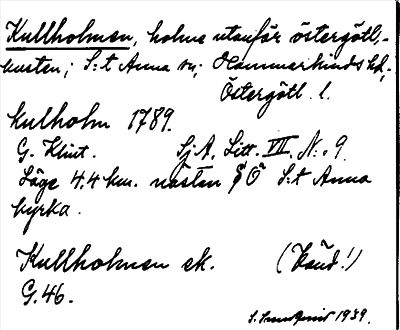 Kullholmen, holme utanför östergötl.-
kusten; S:t Anna sn; Hammarkinds hd,
Östergötl. l.
Kulholm 1789.
G. Klint. Sj.A. Litt. VII. N:.9.
Läge 4.4 km. nästan SÖ S:t Anna
kyrka.
Kullholmen ek. (Känd!)
G.46.
1939.